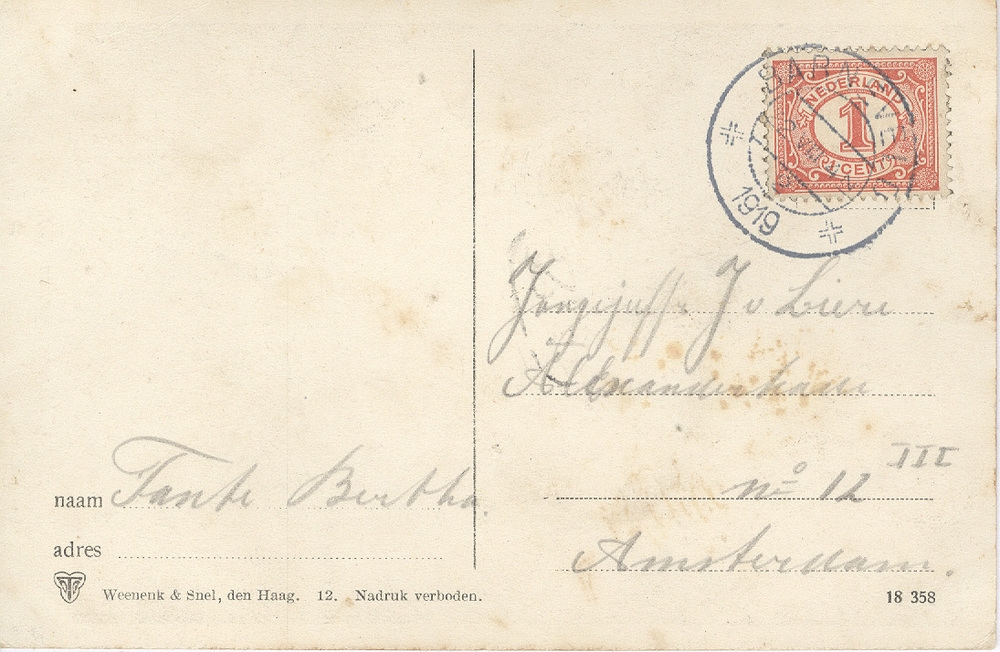 BARNEVELD
1919
NEDERLAND
1
CENT
Jongejuffr. J v Liere
Alexanderkade
no 12 III
Amsterdam.
naam Tante Bertha.
adres
Weenenk & Snel, den Haag. 12. Nadruk verboden.
18 358